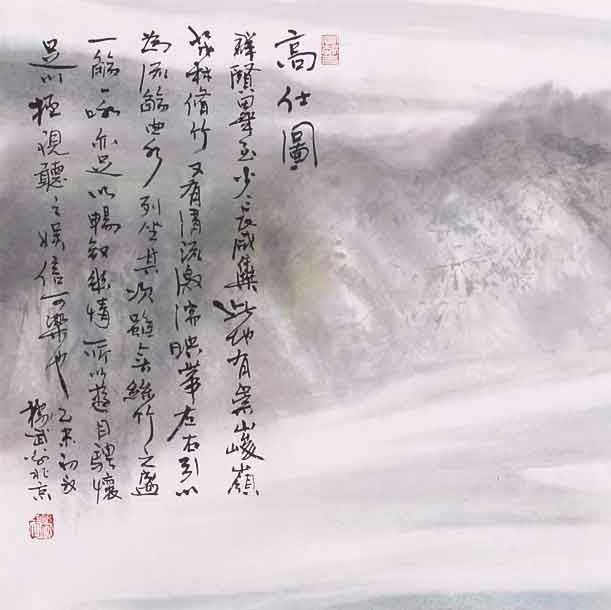 高仕圖
群賢畢至少長咸集此地有崇山峻嶺
茂林脩竹又有清流激湍映帶左右引以
為流觴曲水列坐其次雖無絲竹之盛
一觴一詠亦足以暢敘幽情所以遊目騁懷
足以極視聽之娛信可樂也乙未初
楊武於北京